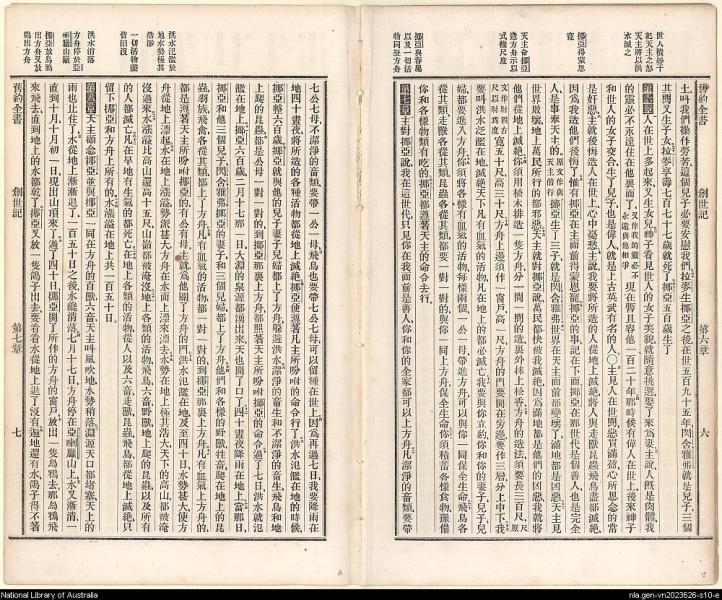 世人積惡干犯天主忿怒天主將以洪水滅之
挪亞得蒙恩寵
天主命挪亞造方舟示以式樣尺度
挪亞與眷屬以及一切活物同登方舟
舊約全書 創世記 第六章 六
土叫我們操作勞苦這個兒子必要安慰我們拉麥生挪亞之後在世五百九十五年
其間又生子女拉麥享壽七百七十七歲就死了挪亞五百歲生了
第六章人在世上多起來又生女兒神子看見世人的女子美貌就隨意挑選娶了來為妻主說人既是肉體我
的靈必不永遠住在他裏面了現在暫且容他一百二十年那時候有偉人在世上後來神子
和世人的女子交合生了兒子也是偉人就是上古英武有名的人〇主見人在世間惡貫滿盈心所思念的常
是奸惡主就後悔造人在世上心中憂愁主說我要將所造的人從地上滅絕將人與走獸昆蟲飛鳥盡都滅絕
因為我造他們後悔了惟有挪亞在主面前得蒙恩寵挪亞的事記在下面挪亞在那世代是個善人也是完全
人是事奉天主的挪亞生了三子就是閃含雅弗世界在天主面前都變壞了滿地都是凶惡天主見
世界敗壞地上萬民所行的都邪惡天主就對挪亞說萬民都快被我滅絕因為滿地都是他們的凶惡我就將
他們從地上滅絕你須用極木排造一隻方舟分一間一間的造裏外抹上松香方舟的造法須要長三百尺
寬五十尺高三十尺方舟上邊須作一窗戶高一尺方舟的門要開在旁邊要作三層分上中下我
要叫洪水之濫在地滅絕天下凡有血氣的活物凡在地上的都必滅亡我要與你立約你和你的妻子兒子兒
婦都要進入方舟你須將各樣有血氣的活物每樣兩個一公一母帶進方舟可以與你一同保全生命飛鳥各
從其類走獸各從其類昆蟲各從其類都要一對一對的與你一同上方舟保全生命你須積蓄各樣食物預備
你和各樣物類有吃的挪亞都遵著天主的命令去行
第七章主對挪亞說我在這世代只見你在我面前是善人你和你的全家都可以上方舟凡潔淨的畜類要帶
洪水氾濫於地水勢極其浩渺
一切活物盡皆沒
洪水消落
方舟停於亞喇臘山
挪亞放烏鴉出方舟又放鴿出方舟
七公七母不潔淨的畜類要帶一公一母飛鳥也要帶七公七母可以留種在世上因為再過七日我要降雨在
地四十晝夜將所造的各種活物都從地上滅絕挪亞便遵著凡主所吩咐的命令行了洪水氾濫在地的時候
挪亞整六百歲挪亞就與他的兒子妻子兒婦都上了方舟躲避洪水潔淨的畜生和不潔淨的畜生飛鳥和地
上爬的昆蟲都是公母一對一對的到挪亞那裏上方舟都照著天主所吩咐挪亞的命令過了七日洪水就氾
濫在地上挪亞六百歲二月十七那一日大淵的泉源都湧出來天也開了口了四十晝夜降雨在地上當那日
挪亞和他三個兒子閃含雅弗挪亞的妻子和三個兒婦都上了方舟他們和各樣的野獸牲畜爬在地上的昆
蟲羽族飛禽各從其類都上了方舟凡有血氣的活物都一對一對的到挪亞那裏上方舟凡有血氣上方舟的
都是遵著天主所吩咐挪亞的有公有母主就為他關了方舟的門洪水氾濫在地及至四十日水勢甚大使方
舟從地上漂起水在地上漲溢勢派甚大方舟在水面上漂來漂去水勢在地上極其浩大天下的高山都被淹
沒過來水漲溢比高山還高十五尺山嶺都被淹沒地上各類的活物飛鳥六畜野獸地上爬的昆蟲以及所有
的人都滅亡凡在旱地有生氣的都死亡在地上各類的活物從人以及六畜走獸昆蟲飛鳥都從地上滅絕只
留下挪亞和方舟上所有的水漲溢在地上共一百五十日
第八章天主顧念挪亞並與挪亞一同在方舟的百獸六畜天主叫風吹地水勢稍落淵源天口都堵塞天上的
雨也止住了水從地上漸漸退了一百五十日之後水纔消落七月十七日方舟停在亞喇臘山上水又漸消一
直到十月十月初一日現出山頂來了過了四十日挪亞開了所作的方舟的窗戶放出一隻烏鴉去那烏鴉飛
來飛去直到地上的水都乾了挪亞又放一隻鴿子出去要看看水從地上退了沒有遍地還有水鴿子得不著
舊約全書 創世記 第七章 七
National Library of Australia
nla.gen-vn2023526-s10-e